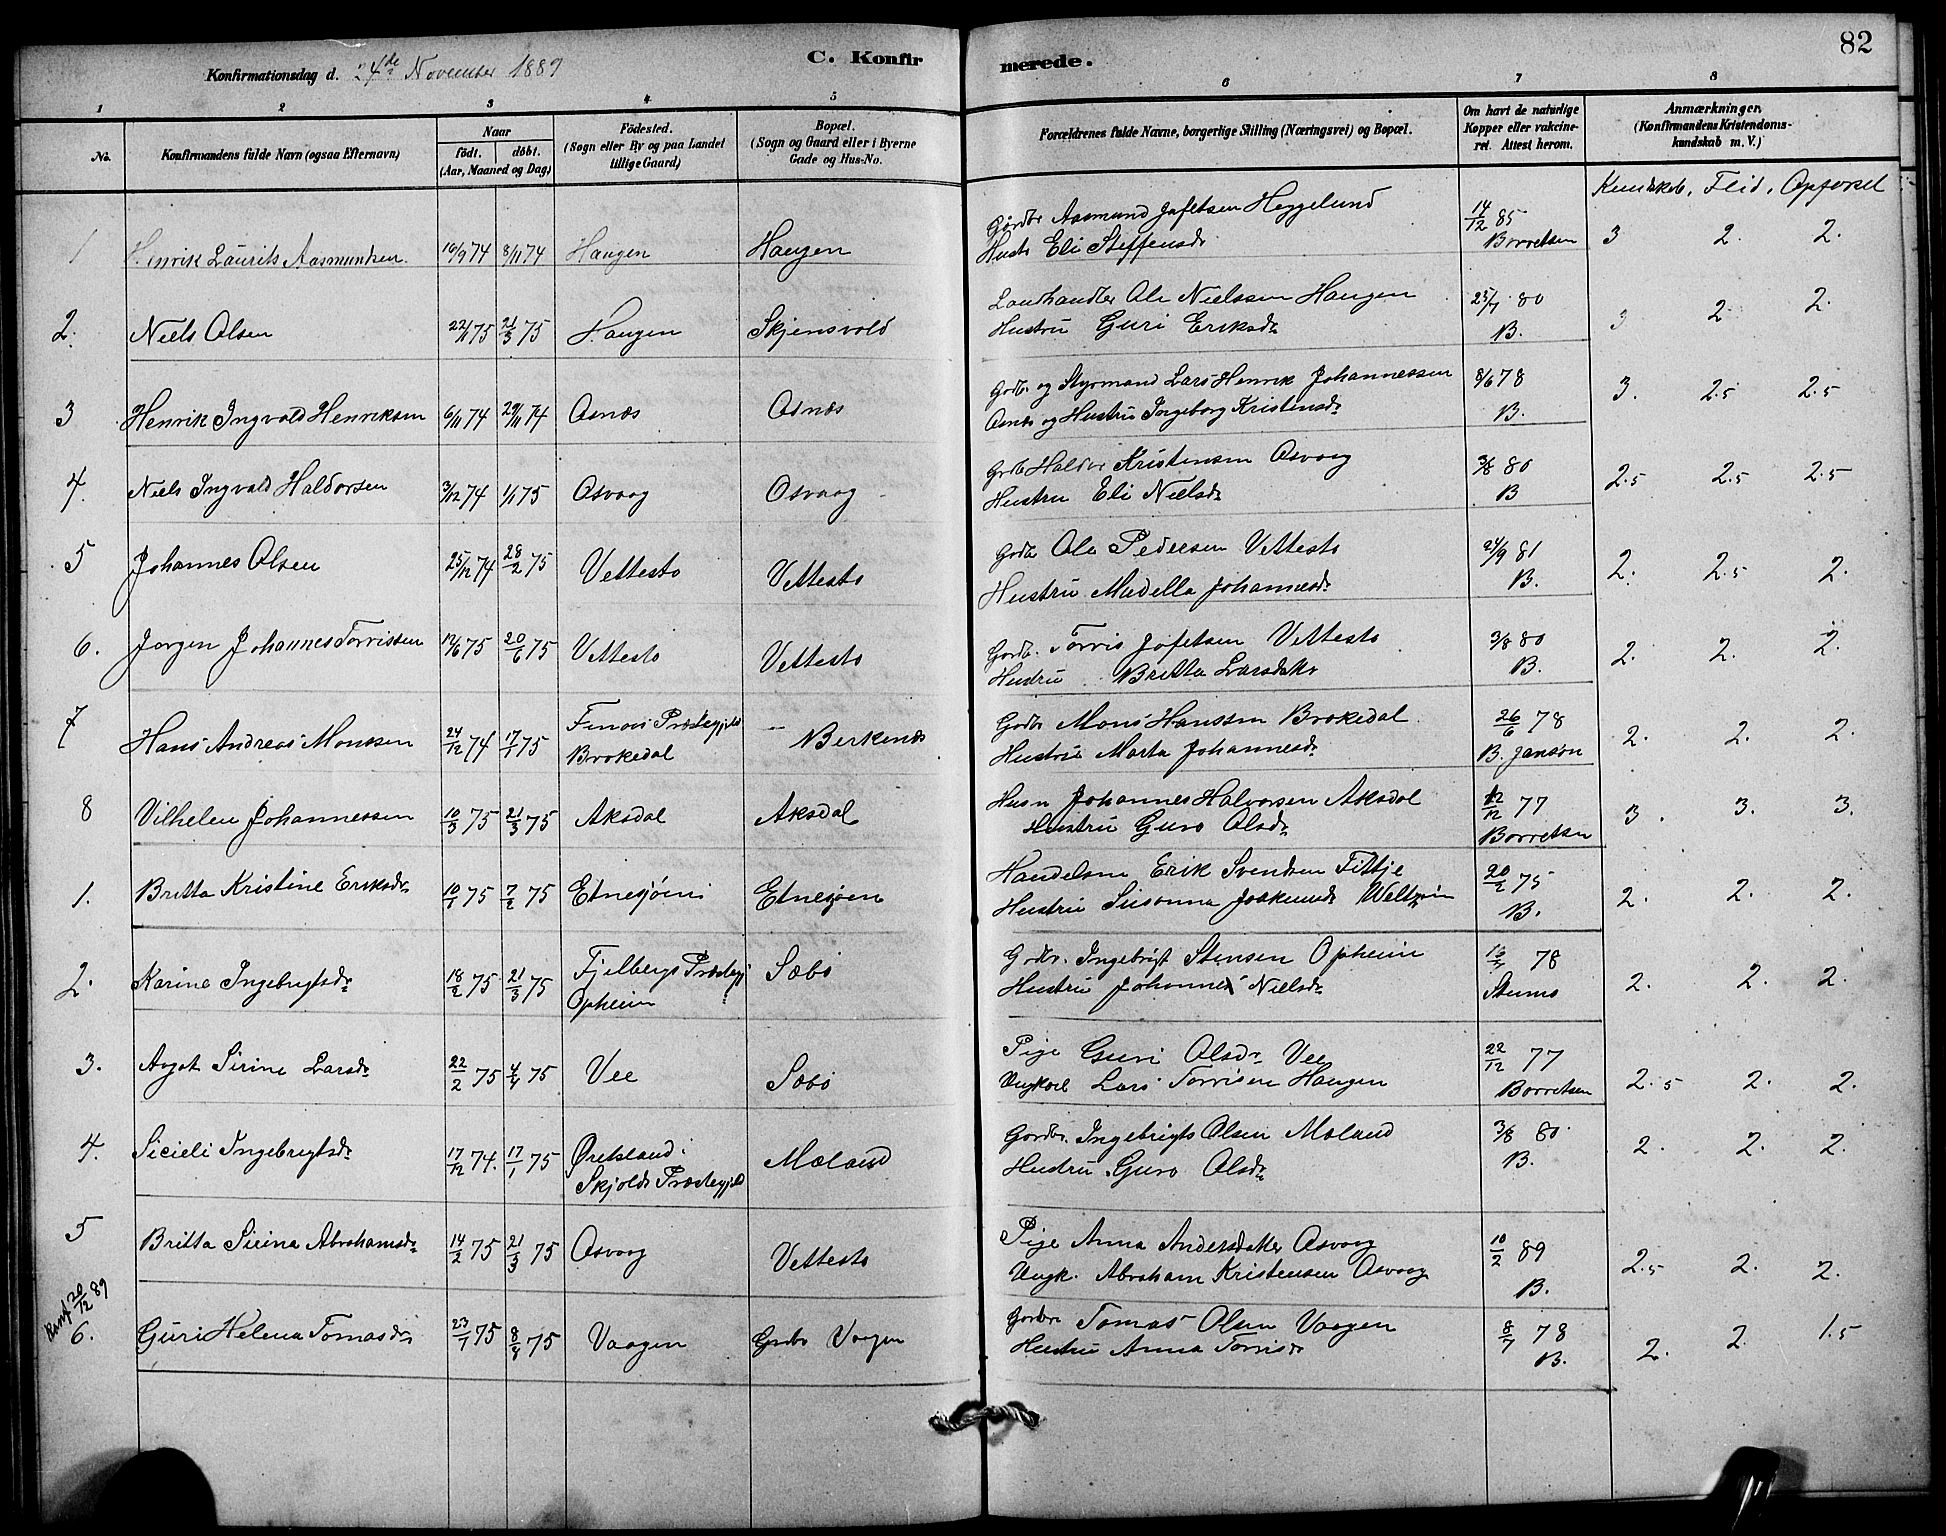 82
Konfirmationsdag d. 24de November 1889
C. Konfirmerede.
1 2 3 4 5 6 7 8
No.
Konfirmandens fulde Navn (ogsaa Efternavn)
Naar
födt. döbt.
(Aar, Maaned og Dag)
Födested.
(Sogn eller By og paa Landet
tillige Gaard)
Bopæl.
(Sogn og Gaard eller i Byerne
Gade og Hus-No.
Forældrenes fulde Navne, borgerlige Stilling (Næringsvei) og Bopæl.
Om havt de naturlige
Kopper eller vakcine-
ret. Attest herom.
Anmærkninger.
(Konfirmandens Kristendoms-
kundskab m. V.)
Kundskab, Flid, Opførsel
1 Henrik Laurits Aasmundsen 16/9 74 8/11 74 Haugen Haugen
Gårdbr Aasmund Jofetsen Heggelund 14/12 85
Hustr Eli Steffensdr Borretsen 3 2. 2.
2. Niels Olsen 22/1 75 21/3 75 Haugen Skjensvold
Landhandler Ole Nielssen Haugen 25/7 80
Hustru Guri Eriksdr B. 3 2 2.
3 Henrik Ingvald Henriksen 6/11 74 29/11 74 Osnæs Osnæs
Grdb. og Styrmand Lars Henrik Johannessen 8/6 78
Osnes og Hustru Ingeborg Kristensdr B. 3. 2.5 2.5
4. Niels Ingvald Haldorsen 3/12 74 1/1 75 Osvaag Osvaag
Grdb Haldor Kristensen Osvaag 3/8 80
Hustru Eli Nielsdr B 2.5 2.5 2.5
5 Johannes Olsen 25/12 74 28/2 75 Vettesto Vettesto
Grdb Ole Pedersen Vettesto 24/9 81
Hustru Madella Johannesdr B. 2. 2.5 2.
6. Jorgen Johannes Torrissen 12/6 75 20/6 75 Vettesto Vettesto
Gordb. Torris Jofetsen Vettesto 3/8 80
Hustru Britta Larsdatter B. 2. 2. 2.
7 Hans Andreas Monssen 24/12 74 17/1 75 Finnøi Præstegjeld
Brokedal Berkenæs
Gordb Mons Hanssen Brokedal 26/6 78
Hustru Marta Johannesdr B. Janson 2. 2. 2.
8 Vilhelm Johannessen 10/3 75 21/3 75 Aksdal Aksdal
Husm Johannes Halvorsen Aksdal 12/12 77
Hustru Guro Olsdr Borretsen 3. 3. 3.
1. Britta Kristine Eriksdr 10/1 75 7/2 75 Etnesjøen Etnesjøen
Handelsm Erik Svendsen Fittje 20/2 75
Hustru Susanna Joakimsdr Weltzin B. 2. 2. 2.
2. Karine Ingebrigtsdr 18/2 75 21/3 75 Fjelbergs Præstegj
Opheim Sæbø
Grdbr. Ingebrigt Stensen Opheim 78
Hustru Johanne Nielsdr 2. 2. 2.
3. Aagot Sirine Larsdr 22/2 75 4/4 75 Vee Sæbø
Pige Guri Olsdr Vee 22/12 77
Ungkarl Lars Torrisen Haugen Borretsen 2.5 2. 2.
4. Sicieli Ingebrigtsdr 17/12 74. 17/1 75 Øretsland
Skjolds Præstegjeld Mæland
Gordbr. Ingebrigts Olsen Mæland 3/8 80
Hustru Guro Olsdr B. 2. 2. 2.
5 Britta Sirina Abrahamsdr 14/2 75 21/3 75 Osvaag Vettesto
Pige Anna Andersdatter Osvaag 10/2 89
Ungk. Abraham Kristensen Osvaag B. 2.5 2. 2.
Konf 20/12 89
6. Guri Helena Tomasdr 23/7 75 8/8 75 Vaagen Grdbr Vaagen
Gordbr Tomas Olsen Vaagen 8/7 78
Hustru Anna Torrisdr B. 2. 2. 1.5